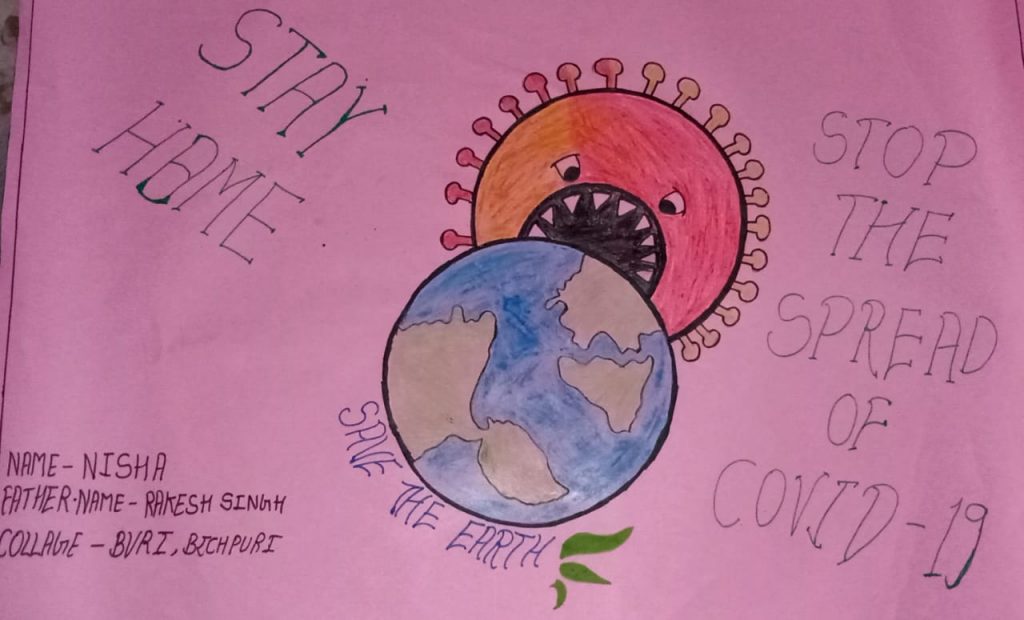 STAY
HOME
STOP
THE
SPREAD
OF
COVID-19
SAVE THE EARTH
NAME- NISHA
FATHER.NAME- RAKESH SINGH
COLLAGE - BVRI, BICHPURI